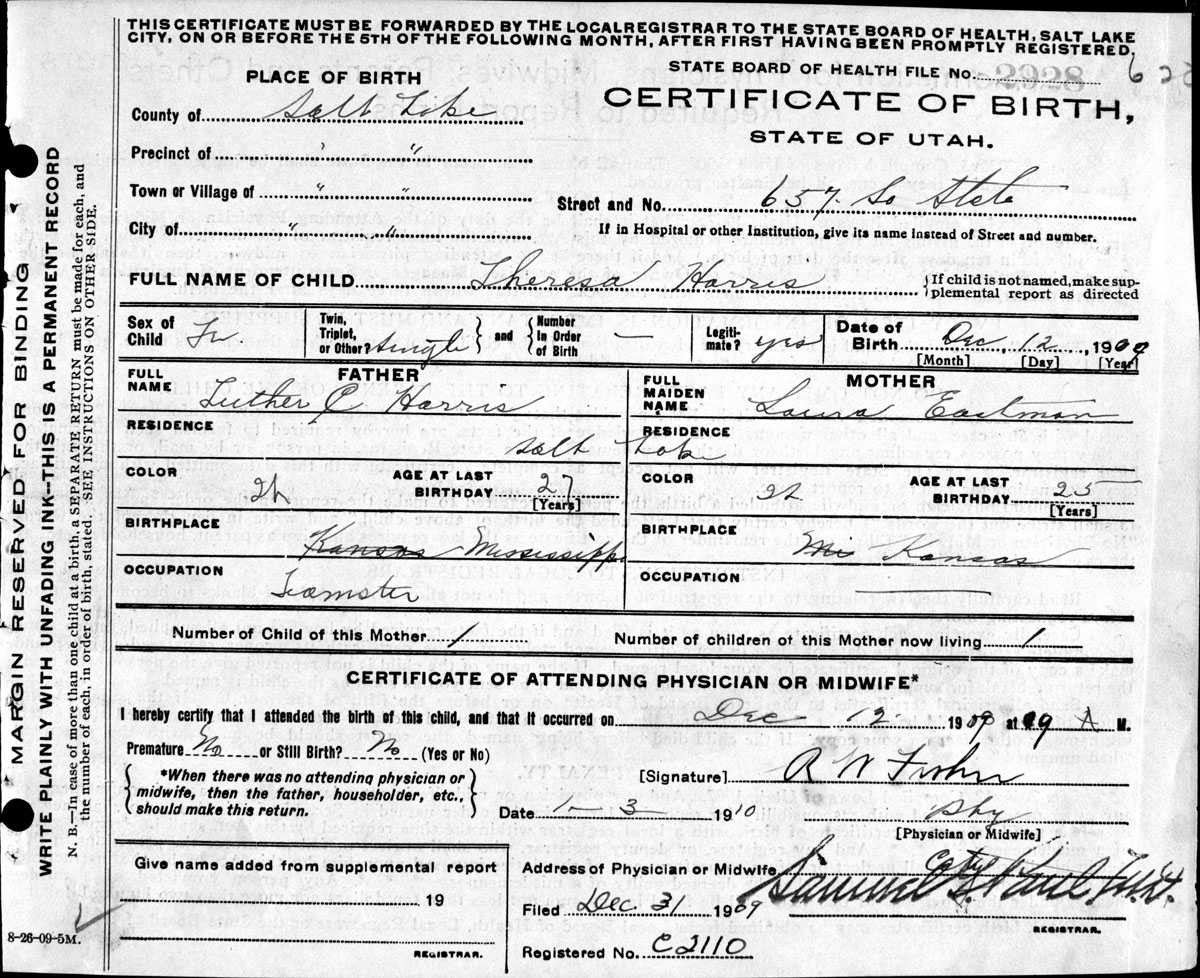 THIS CERTIFICATE MUST BE FORWARDED BY THE LOCAL REGISTRAR TO THE STATE BOARD OF HEALTH, SALT LAKE
CITY, ON OR BEFORE THE 5TH OF THE FOLLOWING MONTH, AFTER FIRST HAVING BEEN PROMPTLY REGISTERED.
STATE BOARD OF HEALTH FILE No.
PLACE OF BIRTH
CERTIFICATE OF BIRTH,
STATE OF UTAH.
County of Salt Lake
Precinct of " "
Town or Village of " "
Street and No. 657 So State
City of " "
If in Hospital or other Institution, give its name instead of Street and number.
FULL NAME OF CHILD Theresa Harris
{If child is not named, make sup-
plemental report as directed
Sex of Child F
Twin, Triplet, or Other? Single } and { Number In Order of Birth
Legiti-mate? yes
Date of Birth Dec, 12, 1909
[Month] [Day] [Year]
FATHER
FULL NAME Luther C Harris
RESIDENCE
Salt Lake
COLOR
AGE AT LAST BIRTHDAY 27
[Years]
BIRTHPLACE
Kansas Mississippi
OCCUPATION
Teamster
MOTHER
FULL MAIDEN NAME Laura Eastman
RESIDENCE
COLOR
AGE AT LAST BIRTHDAY 25
[Years]
BIRTHPLACE
Kansas
OCCUPATION
Number of Child of this Mother 1 Number of children of this Mother now living 1
CERTIFICATE OF ATTENDING PHYSICIAN OR MIDWIFE*
I hereby certify that I attended the birth of this child, and that it occurred on Dec 12 1909 at 9 A M.
Premature No or Still Birth? No (Yes or No)
{*When there was no attending physician or
midwife, then the father, householder, etc.,
should make this return.}
[Signature] R W
Date 1-3 1910 Phy
[Physician or Midwife]
Give name added from supplemental report
19
REGISTRAR.
Address of Physician or Midwife City
Filed Dec. 31 1909 Samuel G Paul
REGISTRAR.
Registered No. C2110
8-26-09-5M.
MARGIN RESERVED FOR BINDING
WRITE PLAINLY WITH UNFADING INK—THIS IS A PERMANENT RECORD
N. B.—In case of more than one child at a birth, a SEPARATE RETURN must be made for each, and
the number of each, in order of birth, stated. SEE INSTRUCTIONS ON OTHER SIDE.